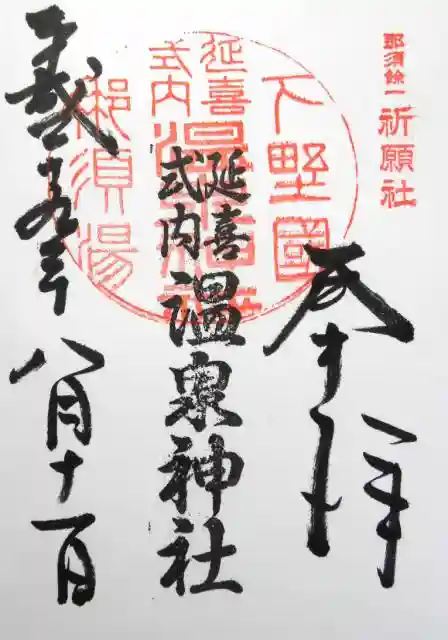 那須餘一
祈願社
奉拝
下野國
延喜
式内
温泉神社
那須湯
延喜
式内
温泉神社
平成二十九年
八月十一日